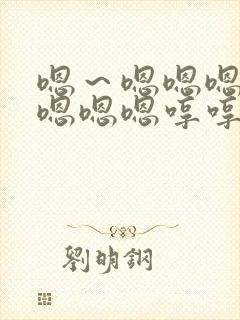 嗯～嗯嗯嗯
嗯嗯嗯哼哼
劉明鋼